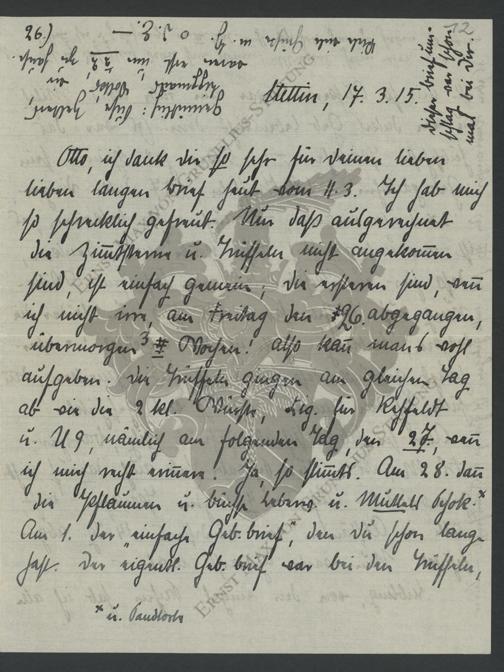 Stettin, 17.3.15.
Otto, ich dank dir so sehr für deinen lieben
lieben langen Brief heut vom 11.3. Ich hab mich
so schrecklich gefreut. Nur daß ausgerechnet
die Zimtsterne u. Trüffeln nicht angekommen
sind, ist einfach gemein; die ersteren sind, wenn
ich nicht irre, am Freitag den 26. abgegangen,
übermorgen 3 Wochen! also kann man's wohl
aufgeben. Die Trüffeln gingen am gleichen Tag
ab wie die 2 kl. Würste, Zig. für
u. U 9, nämlich am folgenden Tag, den 27., wenn
ich mich recht erinnere. Ja, so stimmt's. Am 28. dann
die Pflaumen u. Büchse Leberw. u. Mutters Schok.*
Am 1. der "einfache Geb.brief", den du schon lange
hast. Der eigentl. Geb.brief war bei den Trüffeln,
* u.
Dieser Briefum-
schlag war schon
mal bei dir.
ERNST MAX VON GRUNELIUS-STIFTUNG